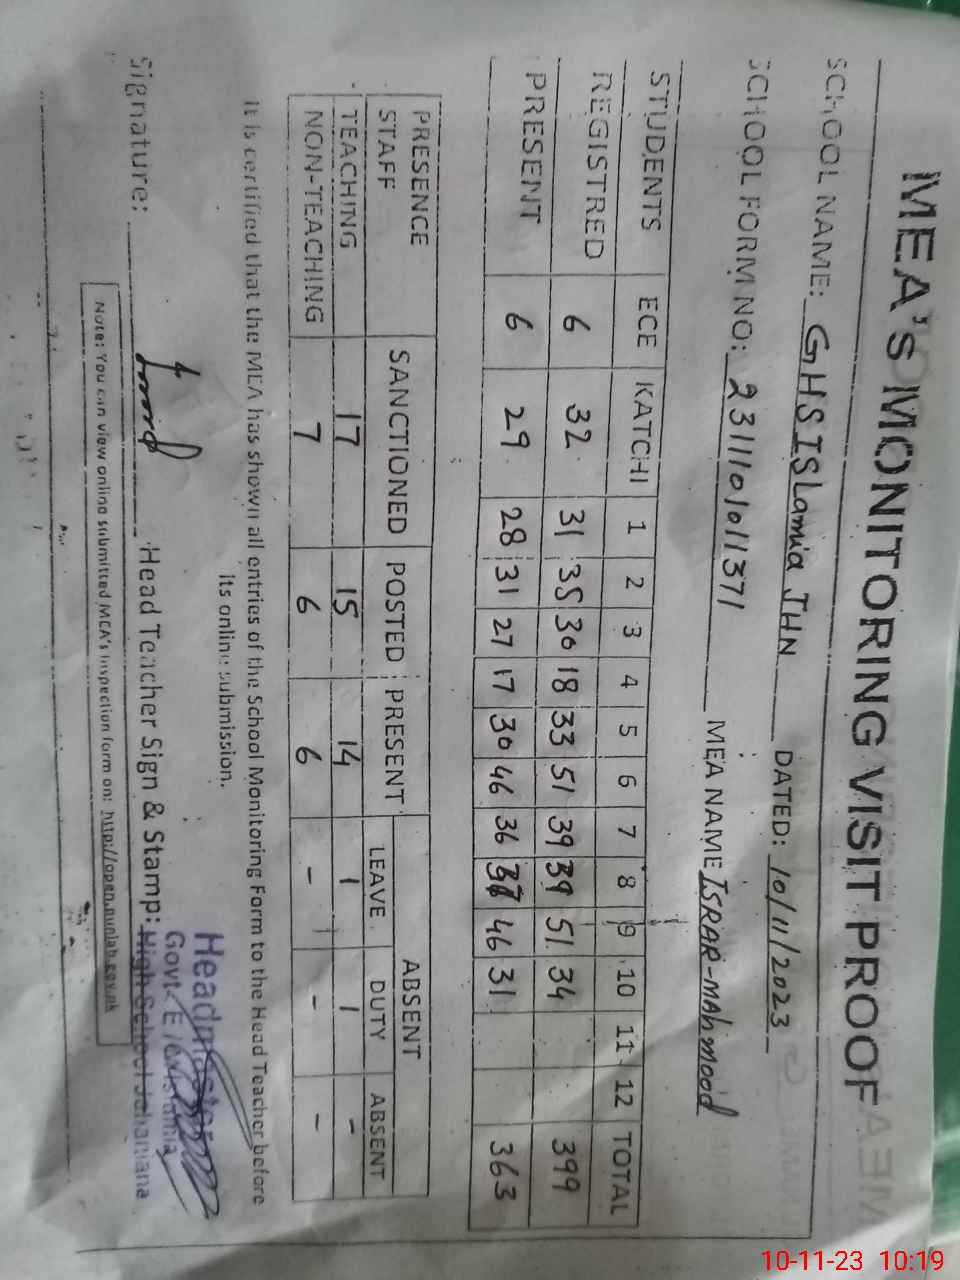 MEA'S MONITORING VISIT PROOF
SCHOOL NAME: GHS ISLamia JHN DATED: 10/11/2023
SCHOOL FORM NO: 231110101371 MEA NAME ISRAR-mAhmood
STUDENTS ECE KATCHI 1 2 3 4 5 6 7 8 9 10 11 12 TOTAL
REGISTRED 6 32 31 35 30 18 33 51 39 39 51 34 399
PRESENT 6 29 28 31 27 17 30 46 36 46 31 363
PRESENCE SANCTIONED POSTED PRESENT ABSENT
STAFF LEAVE DUTY ABSENT
TEACHING 17 15 14 1 1 -
NON-TEACHING 7 6 6 - - -
It is certified that the MEA has shown all entries of the School Monitoring Form to the Head Teacher before
its online submission.
Signature: Head Teacher Sign & Stamp:
Headmaster
Govt.
High School Jahaniana
Note: You can view online submitted MEA's Inspection form on: http://open.punjab.gov.pk
10-11-23 10:19